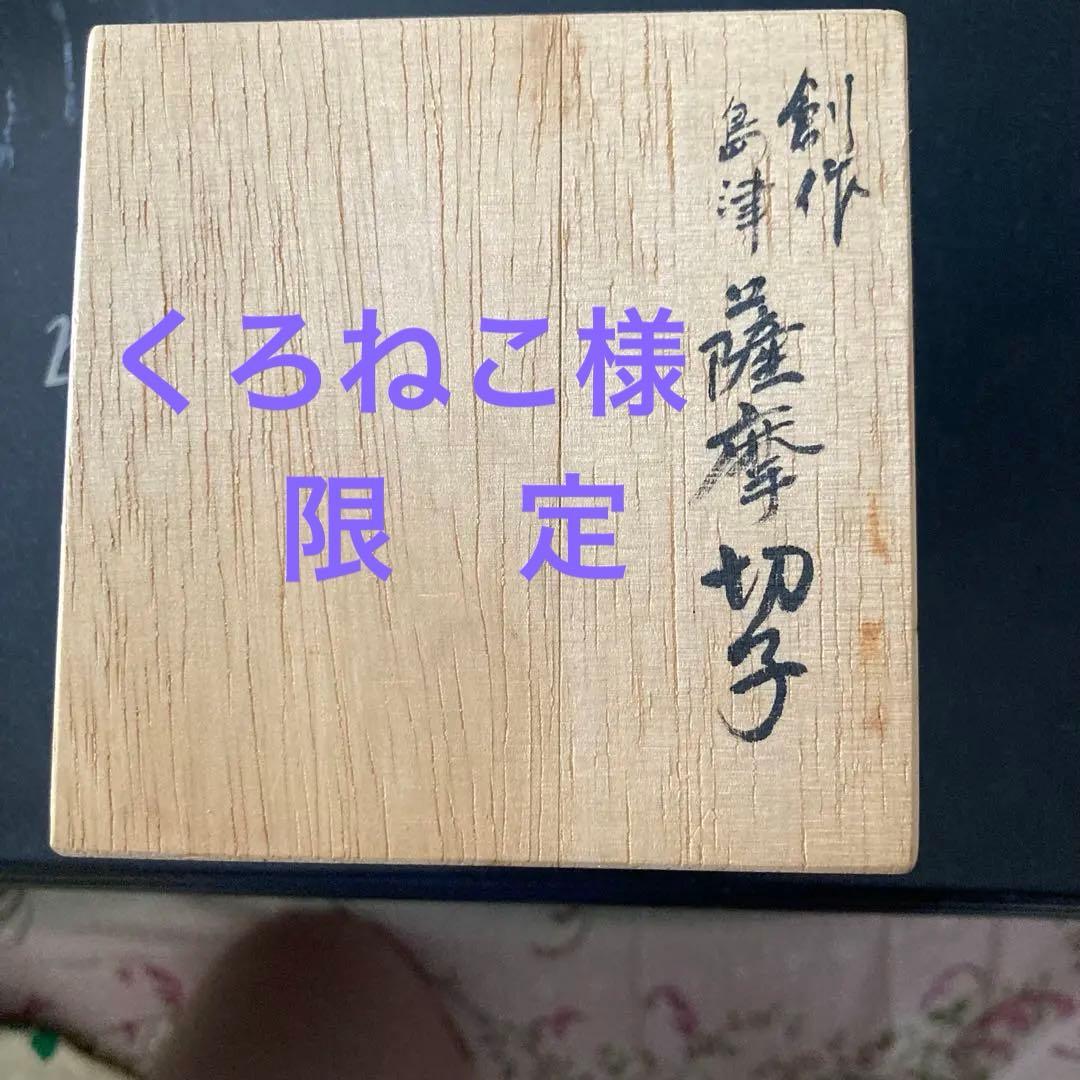 創作
島津
薩摩切子
くろねこ様
限　定